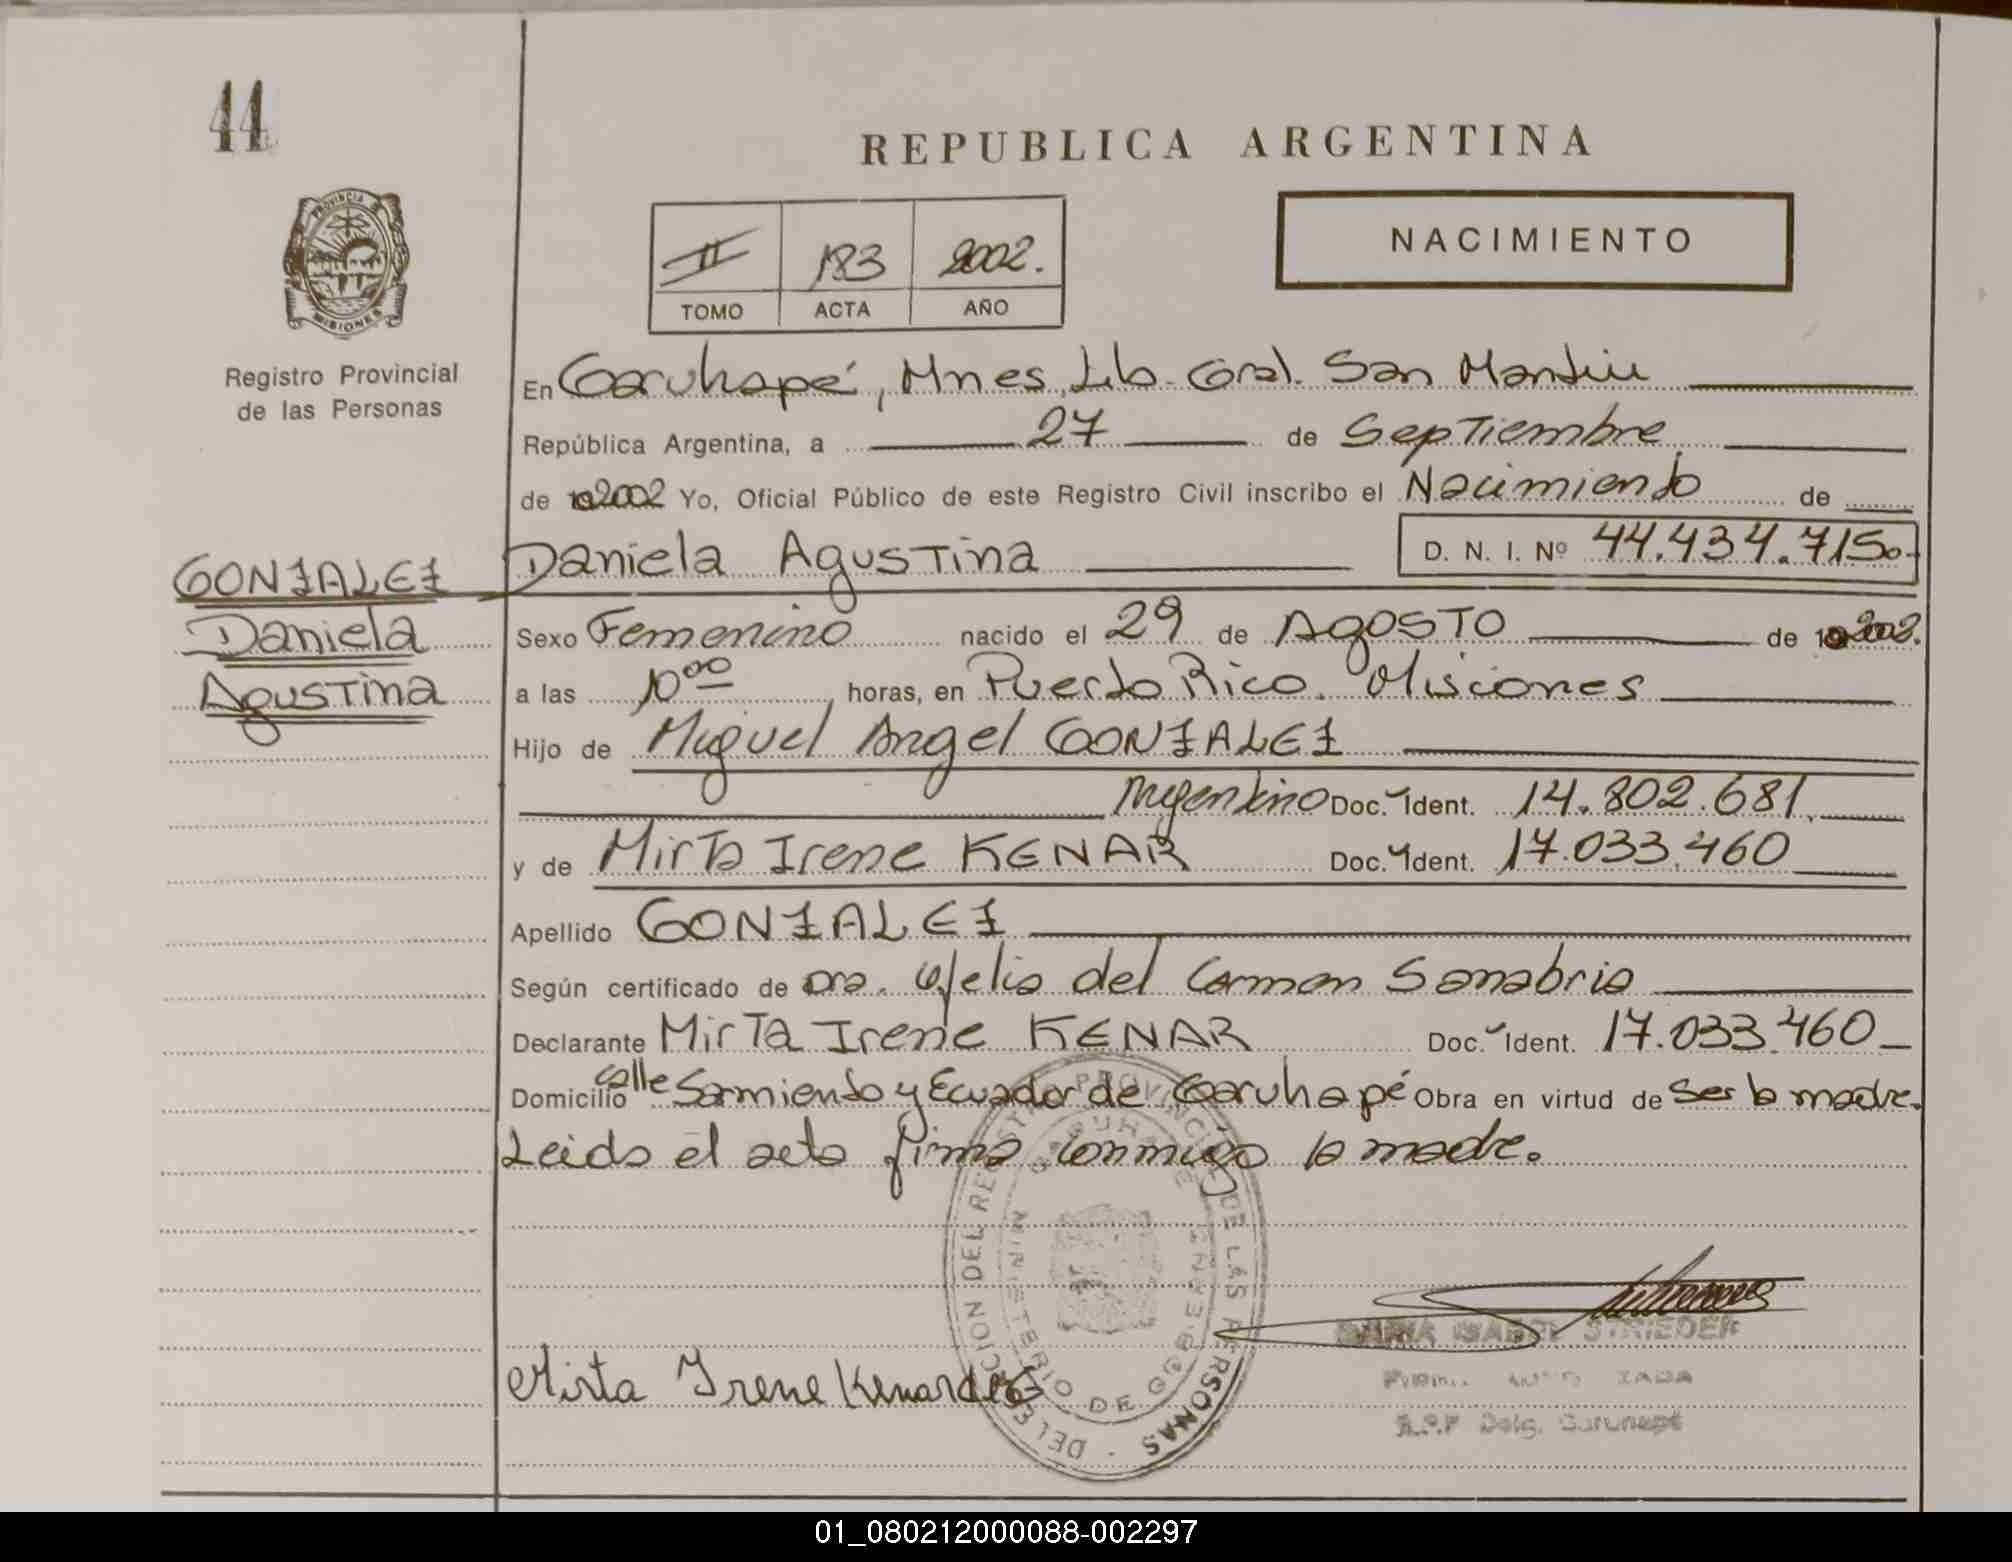 44
REPUBLICA ARGENTINA
PROVINCIA DE
MISIONES
Registro Provincial
de las Personas
II 183 2002.
TOMO ACTA AÑO
NACIMIENTO
En Garuhapé, Mnes, Lib. Gral. San Martin
República Argentina, a 27 de Septiembre
de 2002 Yo, Oficial Público de este Registro Civil inscribo el Nacimiento de
GONZALEZ
Daniela
Agustina
Daniela Agustina D. N. I. Nº 44.434.715.-
Sexo Femenino nacido el 29 de AGOSTO de 2002.
a las 10⁰⁰ horas, en Puerto Rico. Misiones
Hijo de Miguel Angel GONZALEZ
Argentino Doc. Ident. 14.802.681.
y de Mirta Irene KENAR Doc. Ident. 17.033.460
Apellido GONZALEZ
Según certificado de Dra. del Carmen Sanabria
Declarante Mirta Irene KENAR Doc. Ident. 17.033.460
Domicilio calle Sarmiento y Ecuador de Garuhapé Obra en virtud de ser la madre.
Leida el acta firma conmigo la madre.
DEL REGISTRO PROVINCIAL DE LAS PERSONAS
GARUHAPE
MINISTERIO DE GOBIERNO
MARIA ISABEL STRIEDER
Mirta Irene Kenar
01_080212000088-002297